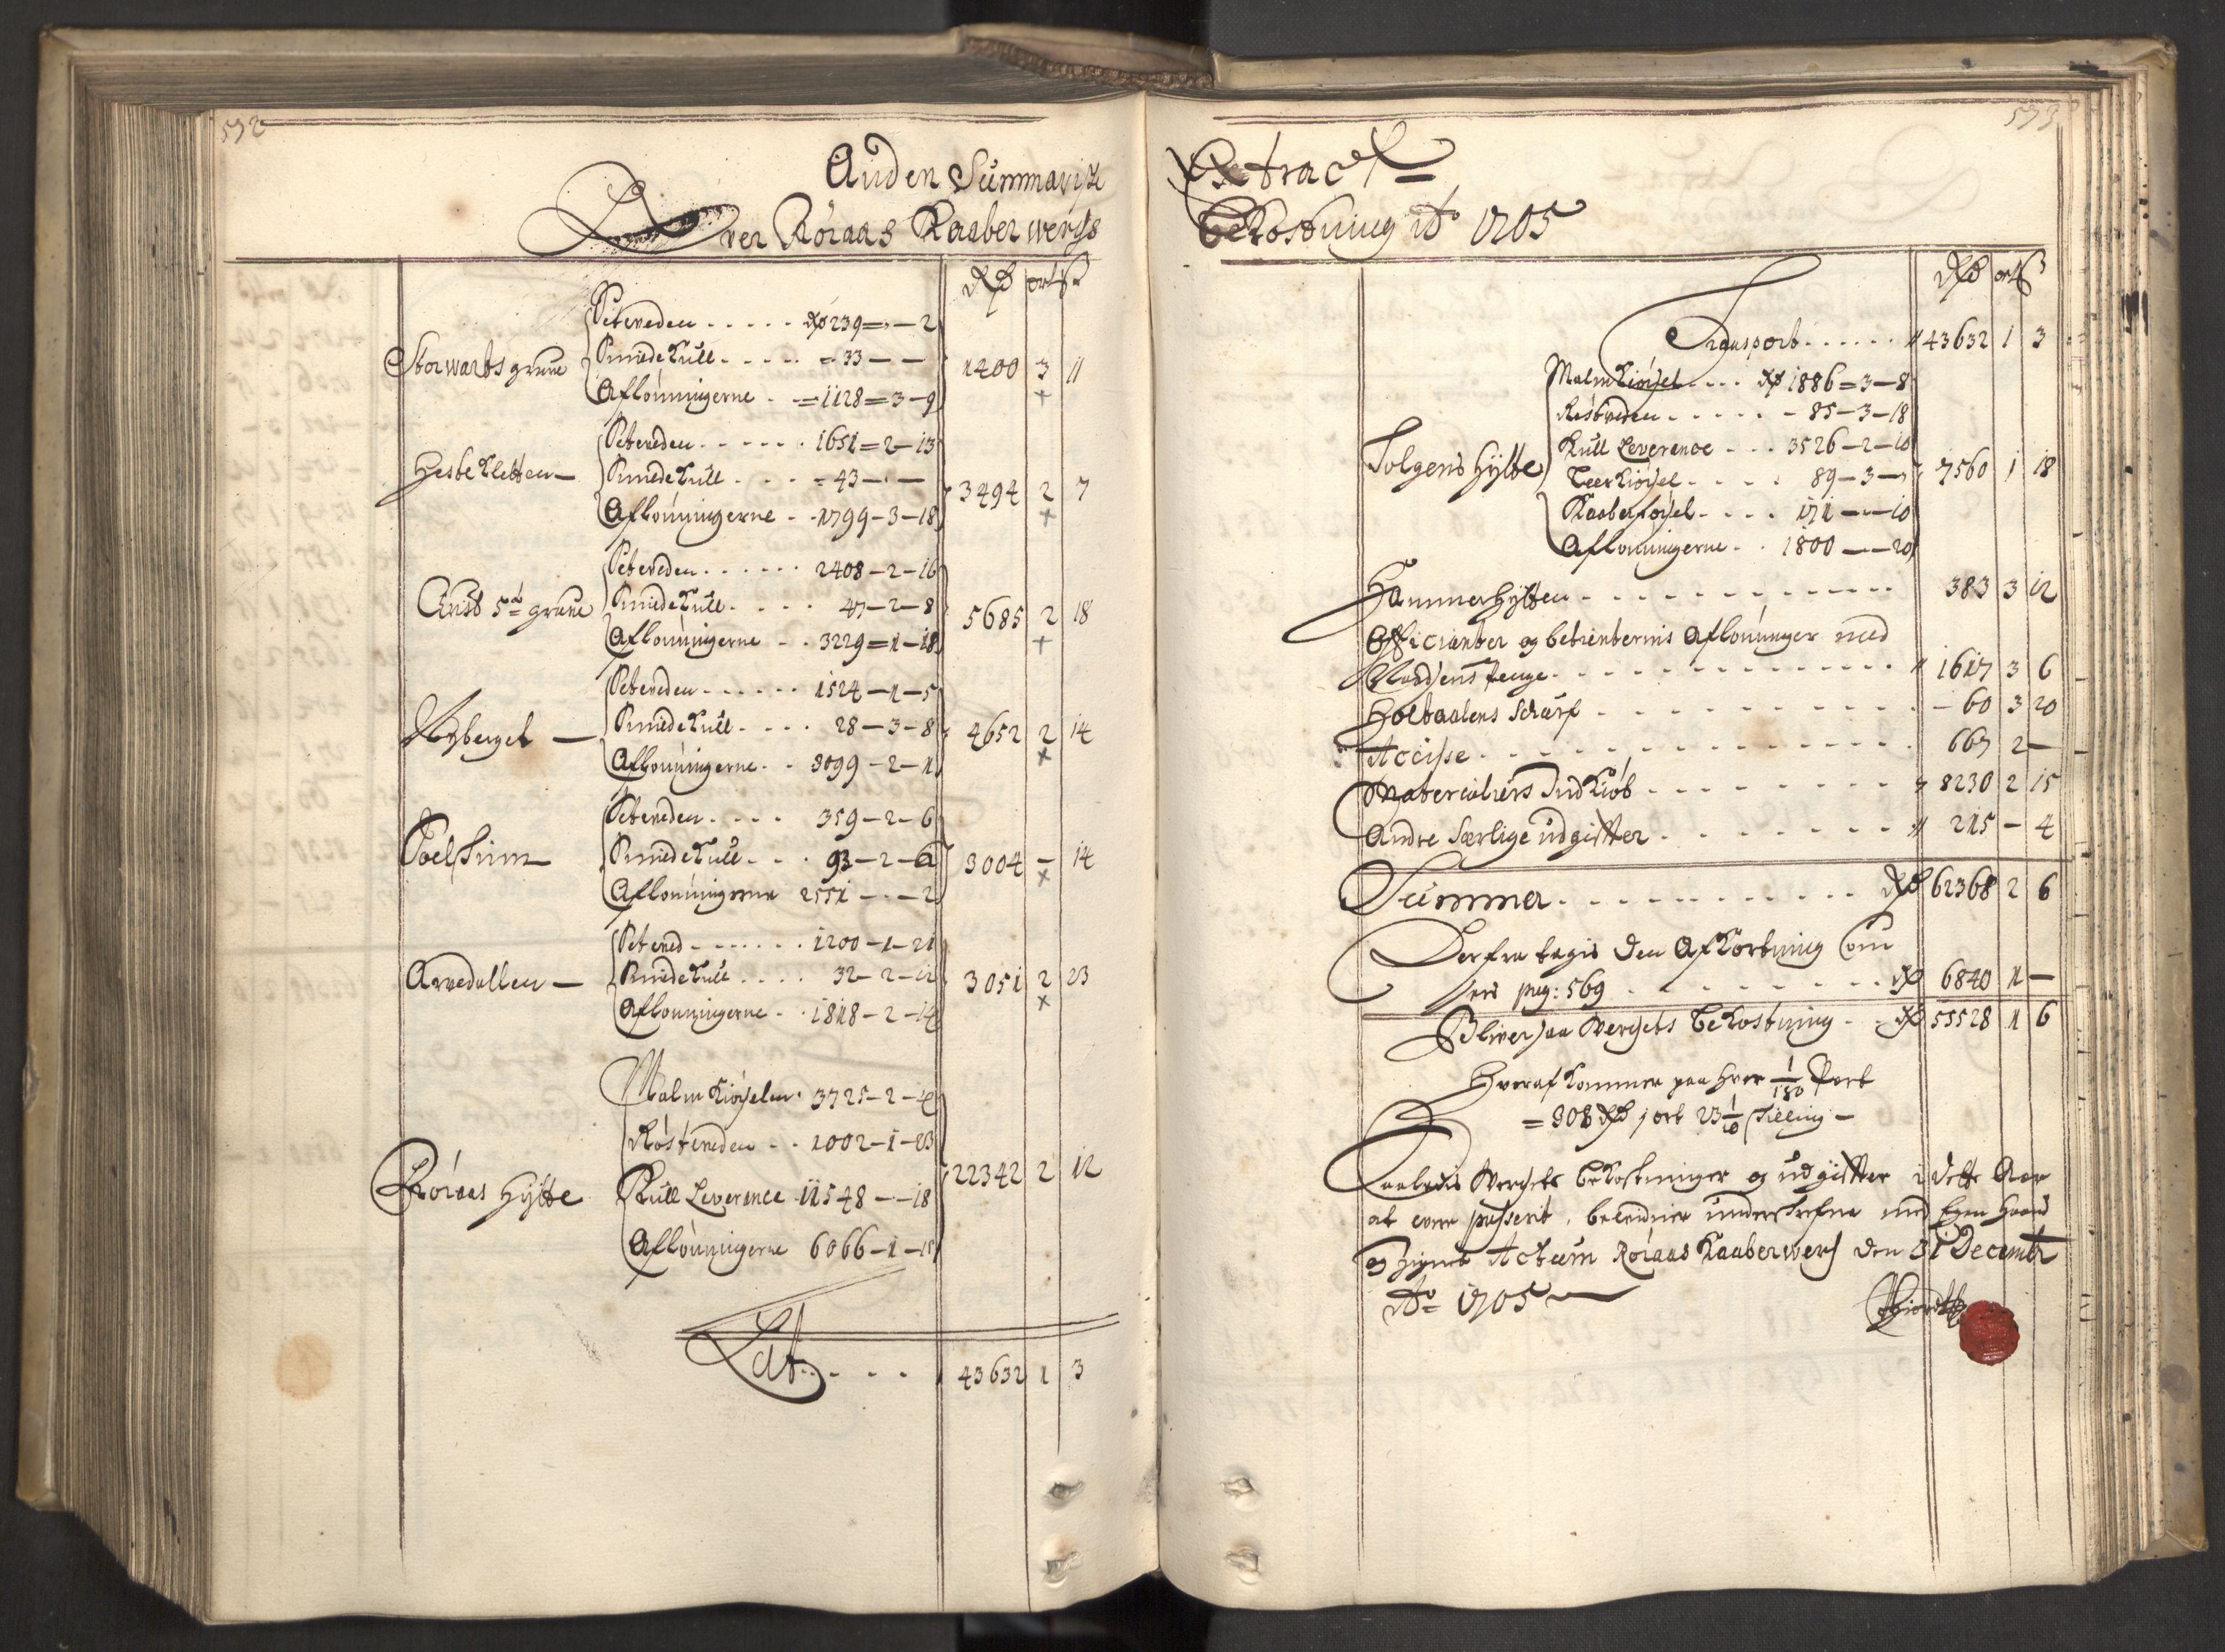 572
Anden Summarisk
Over Röraas Kaaberwerchs
Rdr ort ß
Storwartsgrue
Setveden ..... Rdr 239 = - — 2
Smiede Kull ..... - 33 — —
Aflønningerne .. = 1128 = 3 — 9
1400 3 11
Hestekletten —
Setveden ...... 1651 = 2 — 13
Smiede Kull .... - 43 — - —
Aflønningerne .. 1799 — 3 — 18
3494 2 7
Christ 5te grue
Setveden ...... 2408 — 2 — 16
Smiede Kull .... 47 — 2 — 8
Aflønningerne .. 3229 = 1 — 18
5685 2 18
Nyberget —
Setveden ...... 1524 — 1 — 5
Smiede Kull .... 28 — 3 — 8
Aflønningerne .. 3099 — 2 — 1
4652 2 14
Setveden .... 359 — 2 — 6
Smiede Kull ... 93 — 2 — 6
Aflønningerne 2551 — - — 2
3004 — 14
Arvedallen —
Setved ...... 1200 — 1 — 21
Smiede Kull .... 32 — 2 — 12
Aflønningerne .. 1818 — 2 — 14
3051 2 23
Röraas Hytte
Malm Kiørselen . 3725 — 2 — 4
Röstveden .. 1002 — 1 — 23
Kull Leverence 11548 — - — 18
Aflønningerne 6066 — 1 — 15
22342 2 12
Lat .... 43632 1 3
573
Extract
Bekostning Ao 1705
Rdr ort ß
Transport ...... 43632 1 3
Tolgens Hytte
Malm Kiørsel .... Rdr 1886 = 3 — 8
Röstveden ..... - 85 — 3 — 18
Kull Leverence ... 3526 — 2 — 10
Leer Kiørsel .... 89 — 3 —
Kaaberførsel .... 171 — - — 10
Aflønningerne .. 1800 — - — 20
7560 1 18
Hammer Hytten ............ 383 3 12
Officianter og betienternis Afløninger med
............ 1617 3 6
Holtaalens .......... - 60 3 20
Accisse .............. 667 2 —
Materialiers Indkiöb ........ 8230 2 15
Andre Særlige udgifter ........ 215 — 4
Summa ........... Rdr 62368 2 6
Derfra tagis den Afkortning som
sees pag: 569 ........ Rdr 6840 1 —
Bliver saa Werchets Bekostning .. Rdr 55528 1 6
Hveraf kommer paa hver 1/180 Part
= 308 Rdr 1 ort 23 1/10 skilling —
Saaledis Werchets Bekostninger og udgifter i dette Aar
at vere passerit, bekiender underskrefne med Egen Haand
og Zignet Actum Röraas Kaaberwerch den 31 Decembr
Ao 1705 —